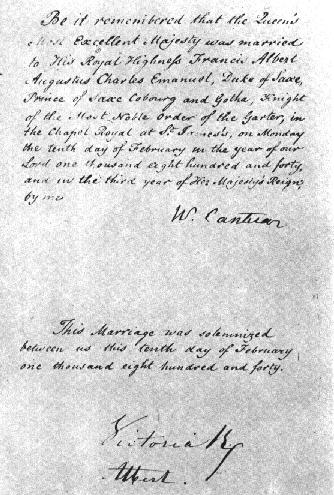 Be it remembered that the Queen's
Most Excellent Majesty was married
to His Royal Highness Francis Albert
Augustus Charles Emanuel, Duke of Saxe,
Prince of Saxe Cobourg and Gotha, Knight
of the Most Noble Order of the Garter, in
the Chapel Royal at St. James's, on Monday
the tenth day of February in the year of our
Lord one thousand eight hundred and forty,
and in the third year of Her Majesty's Reign,
by me
W. Cantuar
This Marriage was solemnized
between us this tenth day of February
one thousand eight hundred and forty.
Victoria R
Albert.